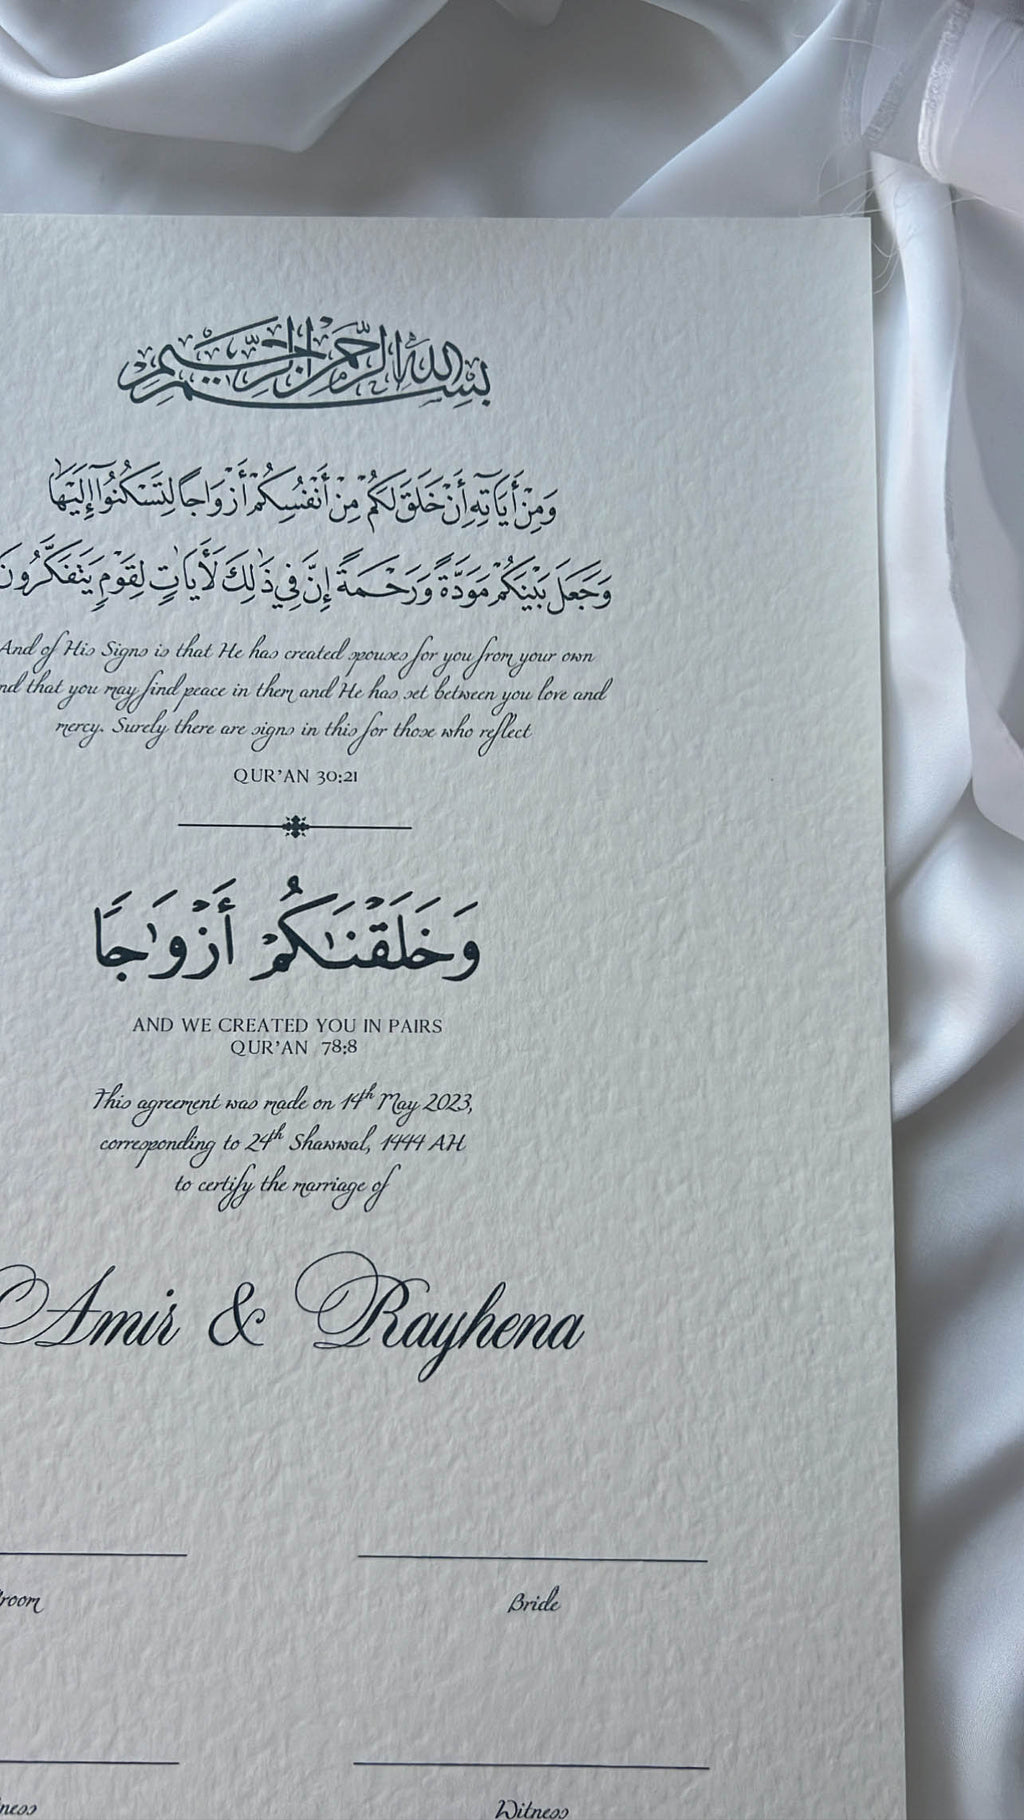 بسم الله الرحمن الرحيم
وَمِنْ أَيَاتِهِ أَنْ خَلَقَ لَكُمْ مِنْ أَنْفُسِكُمْ أَزْوَاجًا لِتَسْكُنُوا إِلَيْهَا
وَجَعَلَ بَيْنَكُمْ مَوَدَّةً وَرَحْمَةً إِنَّ فِي ذَٰلِكَ لَأَيَاتٍ لِقَوْمٍ يَتَفَكَّرُونَ
And of His Signs is that He has created spouses for you from your own
nd that you may find peace in them and He has set between you love and
mercy. Surely there are signs in this for those who reflect
QUR'AN 30:21
وَخَلَقْنَٰكُمْ أَزْوَٰجًا
AND WE CREATED YOU IN PAIRS
QUR'AN 78:8
This agreement was made on 14th May 2023,
corresponding to 24th Shawwal, 1444 AH
to certify the marriage of
Amir & Rayhena
room Bride
ness Witness